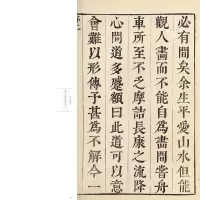 必有間矣余生平愛山水但能
觀人畫而不能自為畫間嘗舟
車所至不乏摩詰長康之流降
心問道多蹙額曰此道可以意
會難以形傳予甚為不解今一